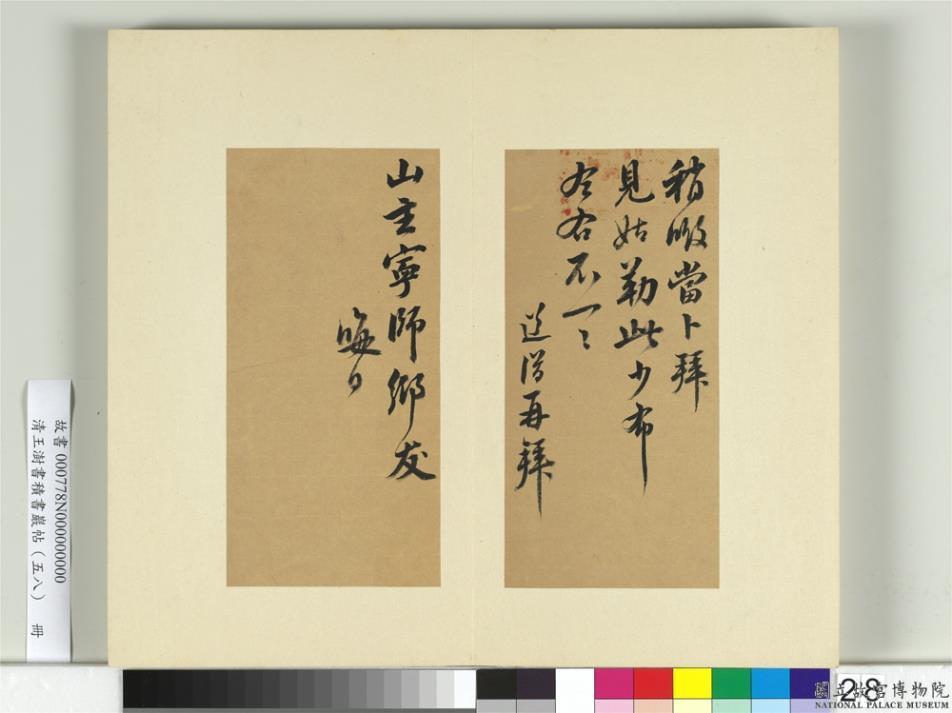 稍暇當卜拜
見姑勒此少布
左右不一々
道潜再拜
山主寧師鄉友
晦日
故書 000778N000000000
清王澍書積書巖帖（五八） 冊
28
國立故宮博物院
NATIONAL PALACE MUSEUM